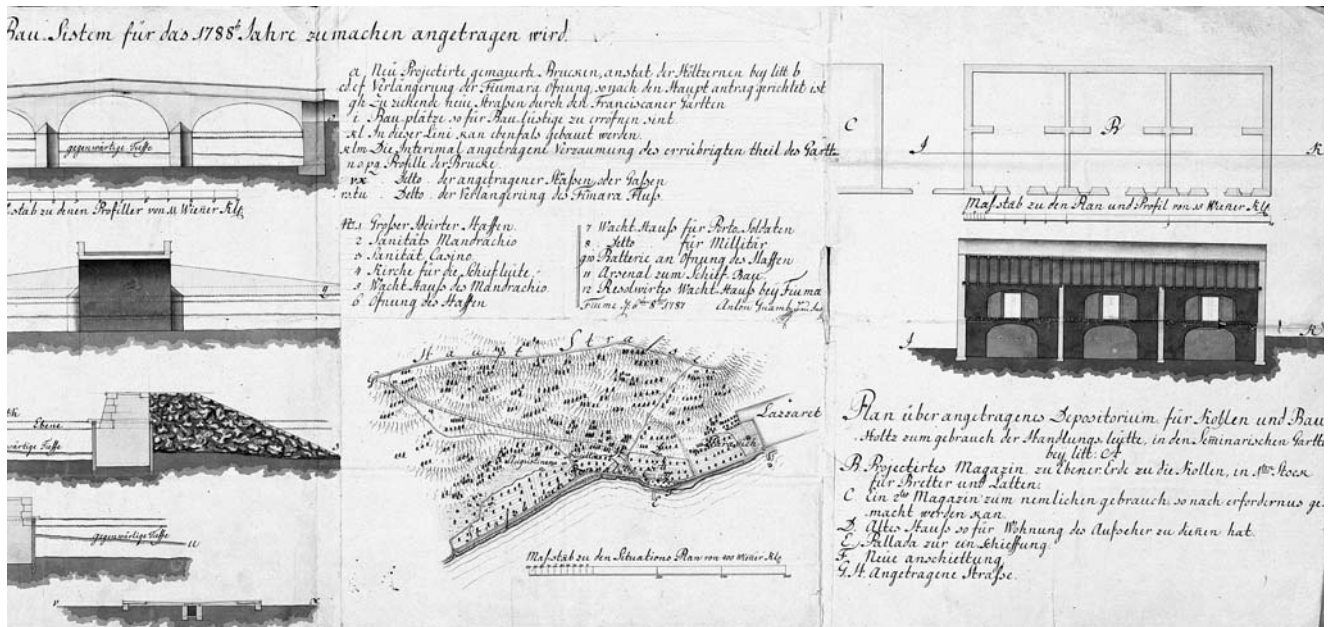 Bau-Sistem für das 1788te Jahre zu machen angetragen wird.
a Neu Projectirte gemauerte Brucken, anstat der Höltzernen bey litt b
cd.ef Verlängerung der Fiumara Öfnung, so nach den Haupt antrag gerichtet ist
gh Zu ziehende neue Strassen durch den Franciscaner Gartten
i Bau plätze so für Bau lüstige zu eröfnen sint
kl In dieser Lini kan ebenfals gebauet werden.
klm Die Interimal angetragene Verzäumung des errübrigten theil des Gartt
nopq Profille der Brucke
vx Detto der angetragener Strassen oder Gassen
rstu Detto der Verlängerung des Fiumara Fluss.
No.1 Grosser
2 Sanitäts Mandrachio
3 Sanität Casino
4 Kirche für die Schiefleüte
5 Wacht Hauss des Mandrachio
6 Öfnung des Haffen
7 Wacht Hauss für Porto Soldaten
8 Detto für Millitär
9 10 Batterie an Öfnung des Haffen
11 Arsenal zum Schiff Bau
12 Resolvirtes Wacht Hauss bey Fiuma
Fiume 1787 Anton Gnamb
gegenwärtige Tieffe
stab zu denen Profiller von 11 Wiener Klf.
q
Ebene
wärtige Tieffe
s
gegenwärtige Tieffe
u
v x
Haupt Strasse
G
Lazzaret
Masstab zu den Situations Plan von 400 Wiener Klf.
C
J
R
K
Masstab zu den Plan und Profil von 10 Wiener Klf.
J
K
Plan über angetragenes Depositorium für Kohlen und Bau
Holtz zum gebrauch der Handlungs leütte, in den Seminarischen Gartte
bey litt: A
B Projectirtes Magazin zu Ebener Erde zu die Kollen, in 1ten Stock
für Bretter und Latten.
C Ein 2tes Magazin zum nemlichen gebrauch so nach erfordernus ge
macht werden kan
D Altes Hauss so für Wohnung des Aufseher zu dienen hat.
E Pallada zur ein Schieffung
F Neue anschiettung
G.H. Angetragene Strasse.